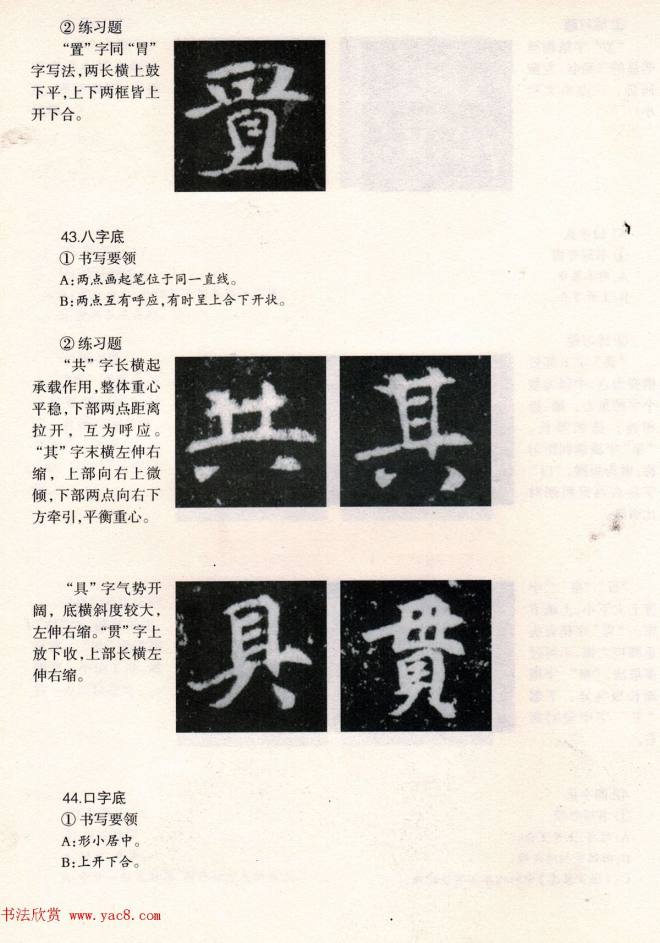 ② 练习题
“置”字同“胃”
字写法，两长横上鼓
下平，上下两框皆上
开下合。
置
43.八字底
① 书写要领
A：两点画起笔位于同一直线。
B：两点互有呼应，有时呈上合下开状。
② 练习题
“共”字长横起
承载作用，整体重心
平稳，下部两点距离
拉开，互为呼应。
“其”字末横左伸右
缩，上部向右上微
倾，下部两点向右下
方牵引，平衡重心。
共 其
“具”字气势开
阔，底横斜度较大，
左伸右缩。“贯”字上
放下收，上部长横左
伸右缩。
具 貫
44.口字底
① 书写要领
A：形小居中。
B：上开下合。
书法欣赏 www.yac8.com